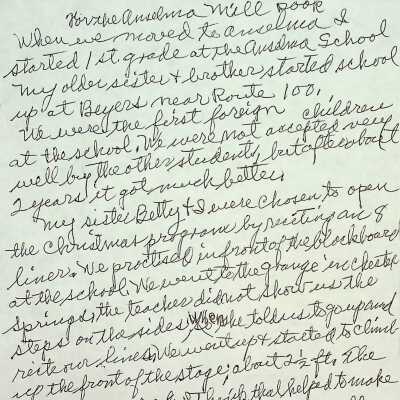 For the Anselma Mill Book
When we moved to Anselma I
started 1st. grade at the Anselma School
my older sister & brother started school
up at Beyers near Route 100.
We were the first foreign children
at the school. We were not accepted very
well by the other students, but after about
2 years it got much better.
My sister Betty & I were chosen to open
the Christmas program by reciting an 8
liner. We practised in front of the blackboard
at the school. We went to the grange in Chester
Springs, the teacher did not show us the
steps on the sides. When she told us to go up and
recite our lines, we went up & started to climb
up the front of the stage, about 2½ ft. The
that helped to make